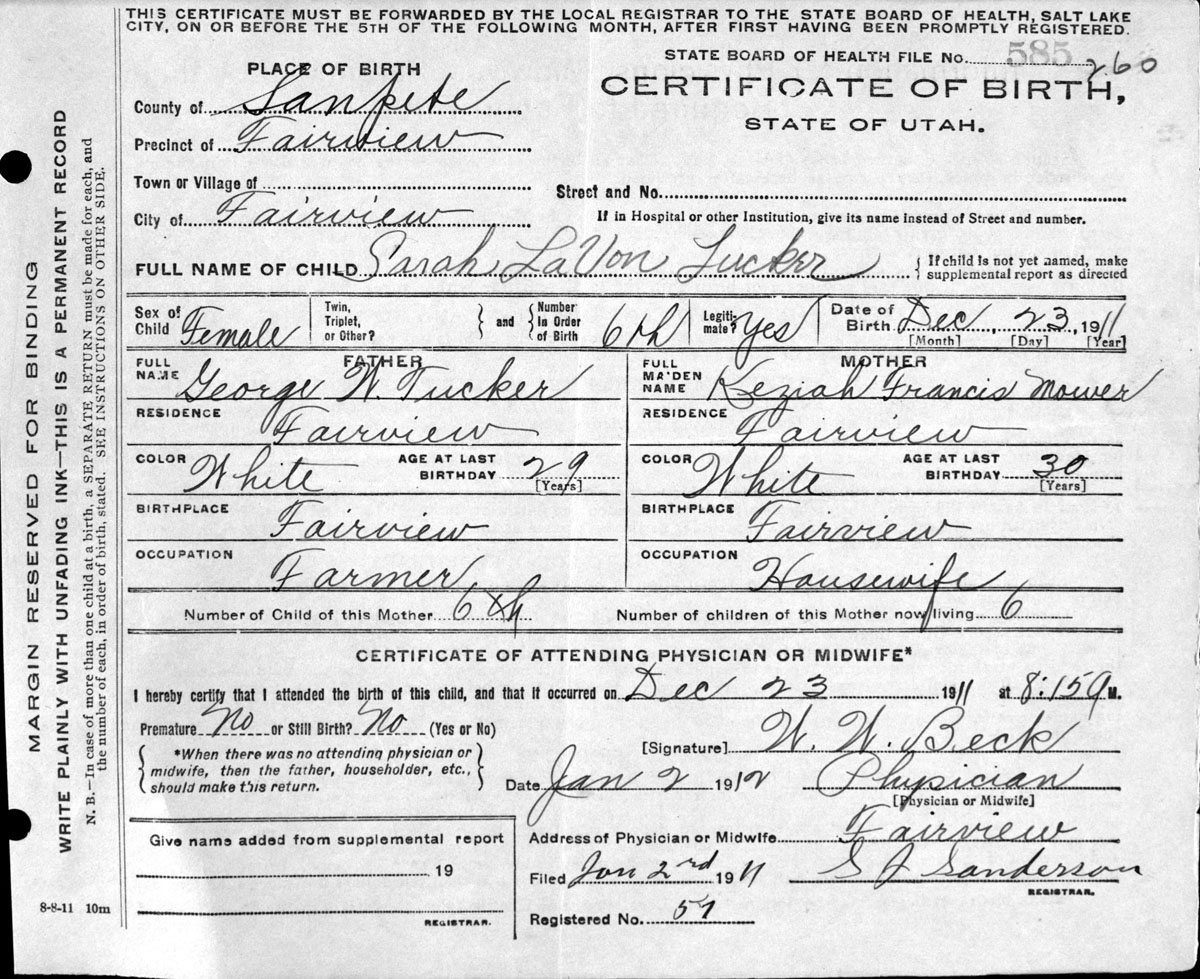 THIS CERTIFICATE MUST BE FORWARDED BY THE LOCAL REGISTRAR TO THE STATE BOARD OF HEALTH, SALT LAKE
CITY, ON OR BEFORE THE 5TH OF THE FOLLOWING MONTH, AFTER FIRST HAVING BEEN PROMPTLY REGISTERED.
MARGIN RESERVED FOR BINDING
WRITE PLAINLY WITH UNFADING INK—THIS IS A PERMANENT RECORD
N. B.—In case of more than one child at a birth, a SEPARATE RETURN must be made for each, and
the number of each, in order of birth, stated. SEE INSTRUCTIONS ON OTHER SIDE.
STATE BOARD OF HEALTH FILE No. 585 260
PLACE OF BIRTH
CERTIFICATE OF BIRTH,
STATE OF UTAH.
County of Sanpete
Precinct of Fairview
Town or Village of
Street and No.
City of Fairview
If in Hospital or other Institution, give its name instead of Street and number.
FULL NAME OF CHILD Sarah LaVon Tucker
{ If child is not yet named, make
supplemental report as directed
Sex of Child Female
Twin, Triplet, or Other? } and { Number in Order of Birth 6th
Legitimate? Yes
Date of Birth Dec 23, 1911
[Month] [Day] [Year]
FATHER
FULL NAME George W. Tucker
MOTHER
FULL MAIDEN NAME Keziah Francis Mower
RESIDENCE Fairview
RESIDENCE Fairview
COLOR White AGE AT LAST BIRTHDAY 29 [Years]
COLOR White AGE AT LAST BIRTHDAY 30 [Years]
BIRTHPLACE Fairview
BIRTHPLACE Fairview
OCCUPATION Farmer
OCCUPATION Housewife
Number of Child of this Mother 6th Number of children of this Mother now living 6
CERTIFICATE OF ATTENDING PHYSICIAN OR MIDWIFE*
I hereby certify that I attended the birth of this child, and that it occurred on Dec 23 1911 at 8:15 M.
Premature No or Still Birth? No (Yes or No)
{ *When there was no attending physician or
midwife, then the father, householder, etc.,
should make this return. }
[Signature] W. W. Beck
Date Jan 2 1912 Physician
[Physician or Midwife]
Address of Physician or Midwife Fairview
Give name added from supplemental report
19
REGISTRAR.
Filed Jan 2nd 1911 S J Sanderson
REGISTRAR.
Registered No. 57
8-8-11 10m